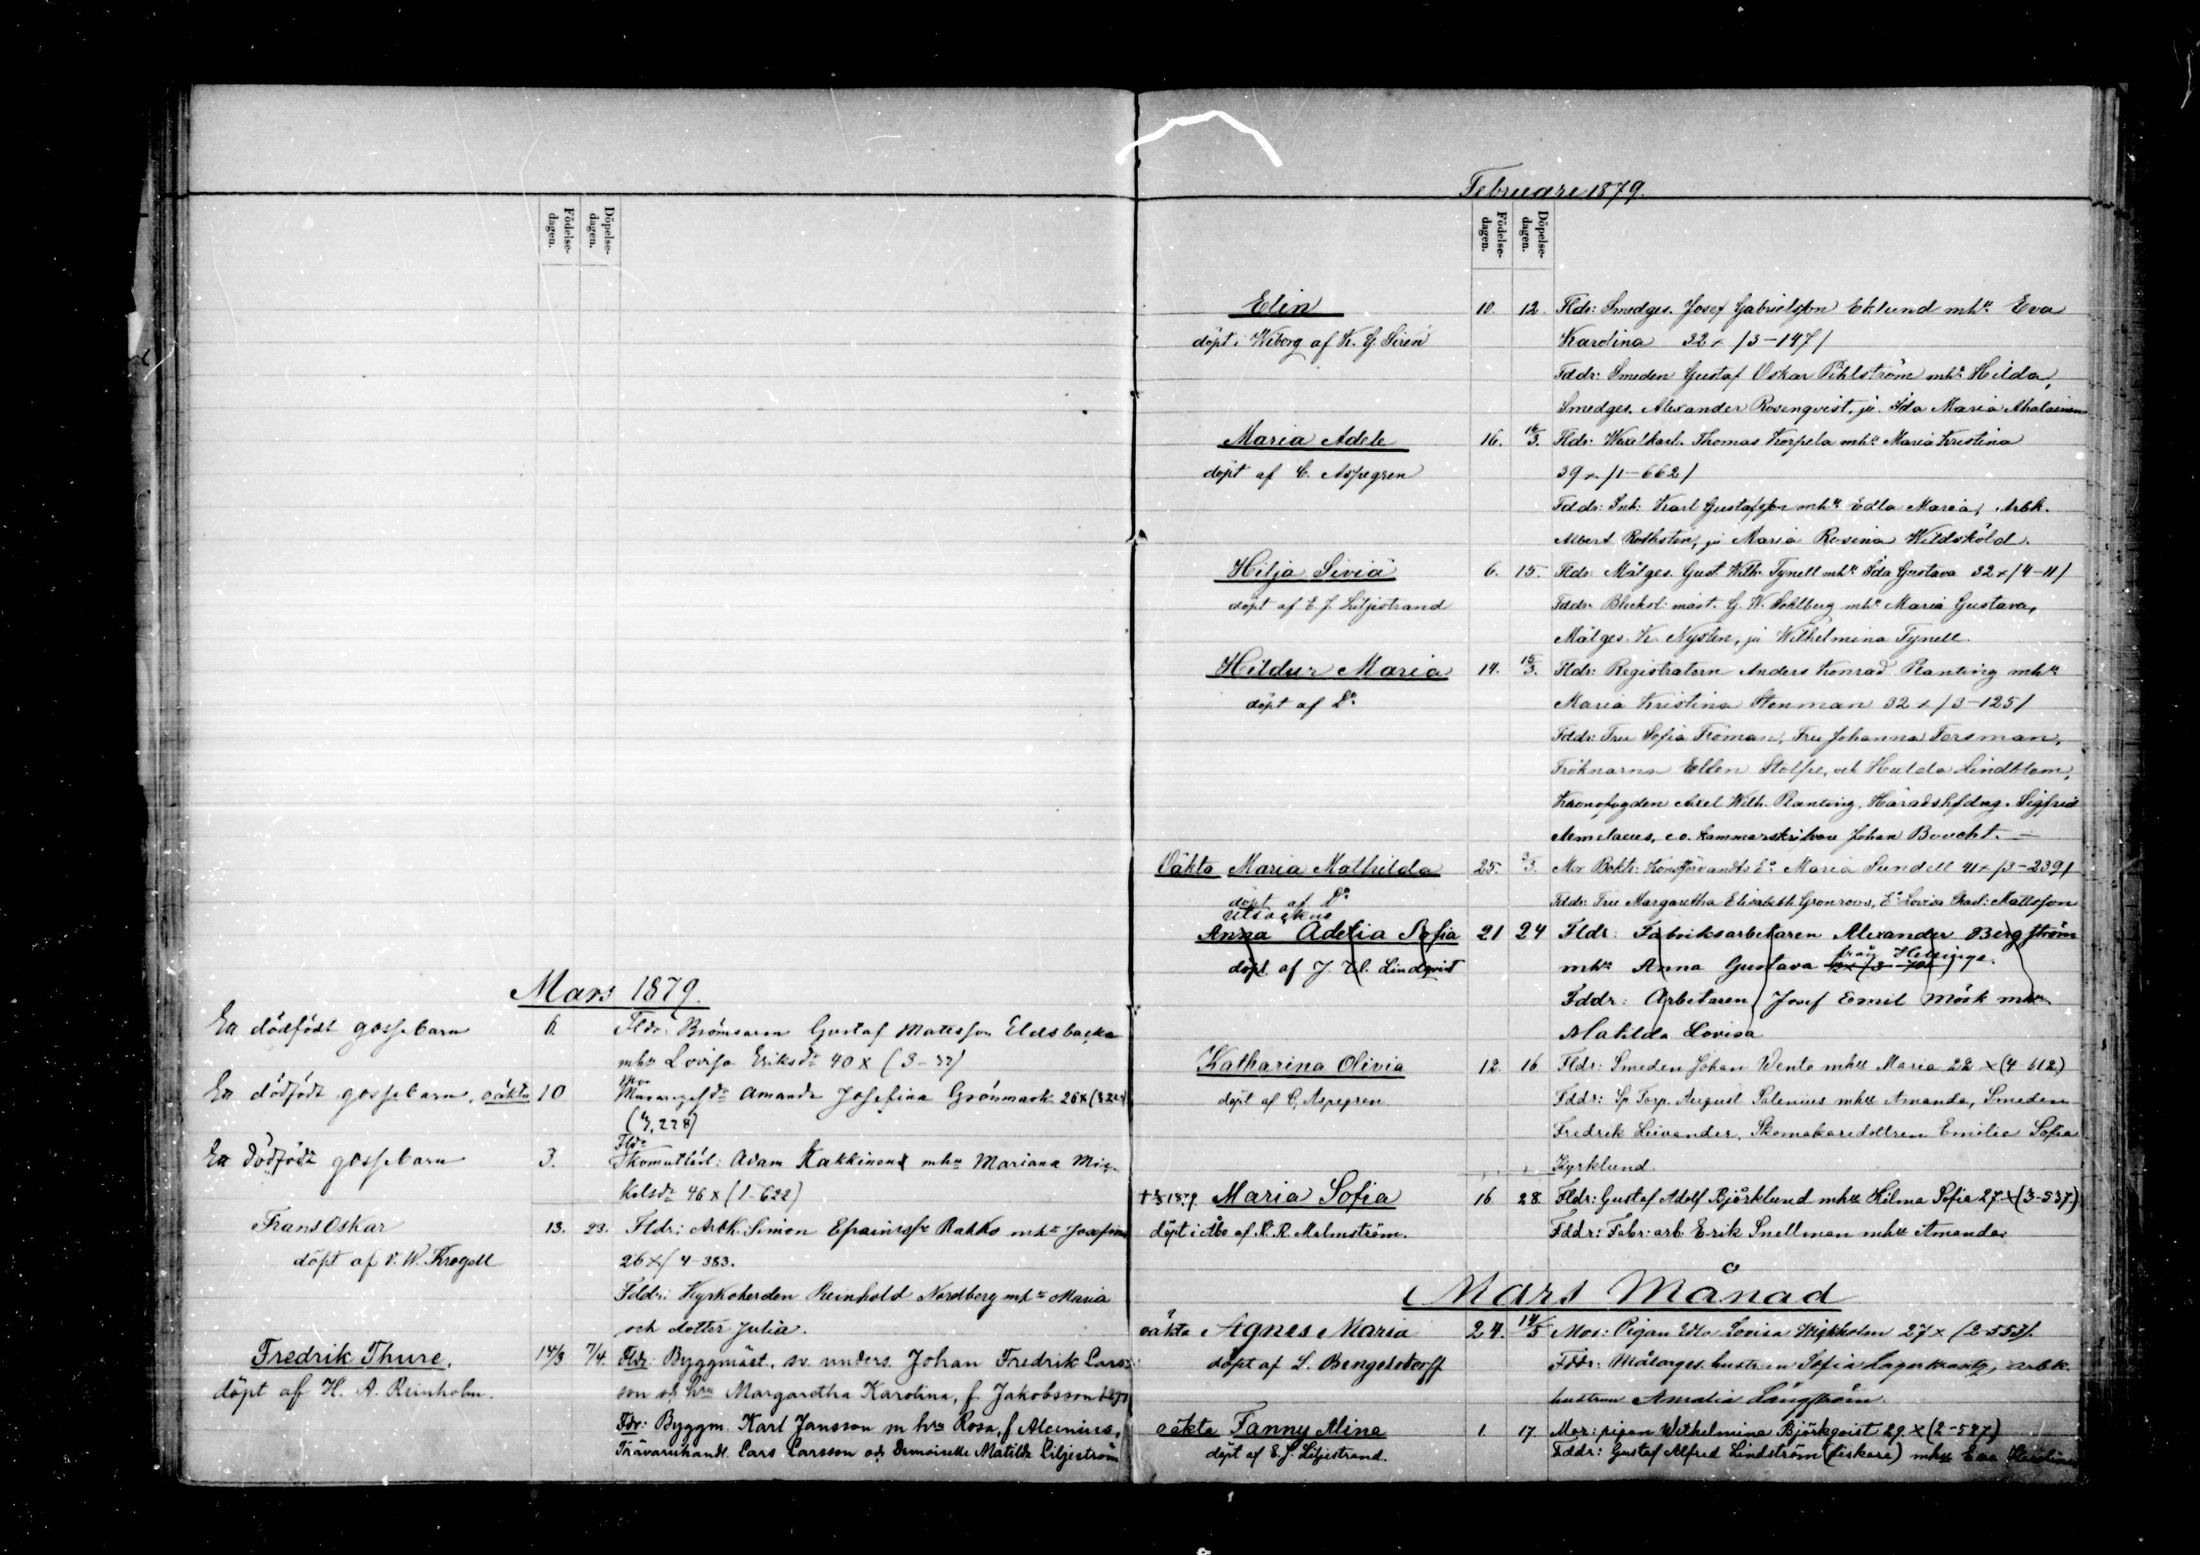 Födelse-dagen.
Döpelse-dagen.
Mars 1879.
En dödfödt gossebarn 6. Fldr: Gustaf Mattsson Eldsbacka
mhu Lovisa Eriksdr 40 x (3-33)
En dödfödt gossebarn, oäkta 10 Mor Amanda Josefina Grönmark 26 x
(4,228)
En dödfödt gossebarn 3. Fldr Adam Kakkinen mhu Mariana Mic-
kelsdr 46 x (1-622)
Frans Oskar 13. 23. Fldr: Arbk. Simon Efraimsson Rakko mhu Josefina
döpt af V. W. Krogell 26 x/4-383.
Fddr: Kyrkoherden Reinhold Nordberg mhu Maria
och dotter Julia.
Fredrik Thure, 14/3 7/4. Fldr: Byggmäst., sv. unders. Johan Fredrik Lars-
döpt af H. A. Reinholm. son och hru Margaretha Karolina, f. Jakobsson
Fdr: Byggm. Karl Jansson m hru Rosa, f. Alcenius,
Trävaruhandl. Lars Larsson och Demoiselle Matilda Liljeström
Februari 1879.
Födelse-dagen.
Döpelse-dagen.
Elin 10. 12. Fldr: Smedges. Josef Gabrielsson Eklund mhu Eva
döpt i Wiborg af K. G. Sirén Karolina 32 x /3-147/
Fddr: Smeden Gustaf Oskar Pihlström mhu Hilda,
Smedges. Alexander Rosenqvist, ju. Ida Maria Ahalainen
Maria Adele 16. 16/3. Fldr: Wexelkarl. Thomas Korpela mhu Maria Kristina
döpt af C. Aspegren 39 x /1-662/
Fddr: Inh: Karl Gustafsson mhu Edla Maria, Arbk.
Albert Rothsten, ju Maria Rosina Wildsköld.
Hilja Siviä 6. 15. Fldr: Målges. Gust. Wilh. Tynell mhu Ida Gustava 32 x /4-11/
döpt af E. J. Liljestrand Fddr: Blecksl. mäst. G. W. Sohlberg mhu Maria Gustava,
Målges. K. Nysten, ju Wilhelmina Tynell.
Hildur Maria 14. 15/3. Fldr: Registratorn Anders Konrad Planting mhu
döpt af Do Maria Kristina Stenman 32 x /3-125/
Fddr: Fru Sofia Fröman, Fru Johanna Forsman,
Fröknarna Ellen Stolpe, och Hulda Lindblom,
Kronofogden Axel Wilh. Planting, Häradshfdng. Sigfrid
Aemelaeus, e.o. kammarskrifvare Johan Boucht. -
Oäkta Maria Mathilda 25. Mor Maria Sundell 41 x /3-239/
döpt af Do Fddr: Fru Margaretha Elisabeth Grönroos, Lovisa Mattsson
Utsockne
Anna Adelia Sofia 21 24 Fldr: Fabriksarbetaren Alexander Bergström
döpt af J. W. Lindqvist mhu Anna Gustava från Helsinge.
Fddr: Arbetaren Josef Emil Mörk mhu
Matilda Lovisa
Katharina Olivia 12. 16 Fldr: Smeden Johan Wento mhu Maria 22 x (4-612)
döpt af C. Aspegren Fddr: Sp Torp. August Salenius mhu Amanda, Smeden
Fredrik Liivander, Skomakaredottren Emilia Sofia
Kyrklund.
Maria Sofia 16 28. Fldr: Gustaf Adolf Björklund mhu Hilma Sofia 27 x (3-537)
döpt i Åbo af K. R. Malmström. Fddr: Fabr: arb Erik Snellman mhu Amanda
Mars Månad
oäkta Agnes Maria 24. 14/5 Mor: Pigan Lovisa 27 x (2-553).
döpt af L. Bengelsdorff Fddr: Målarges. hustrun Sofia Lagerkrantz, arbk.
hustrun Amalia Långström.
oäkta Fanny Alina 1. 17 Mor: pigan Wilhelmina Björkqvist 29 x (2-587)
döpt af E. J. Liljestrand. Fddr: Gustaf Alfred Lindström (fiskare) mhu Eva Karolina